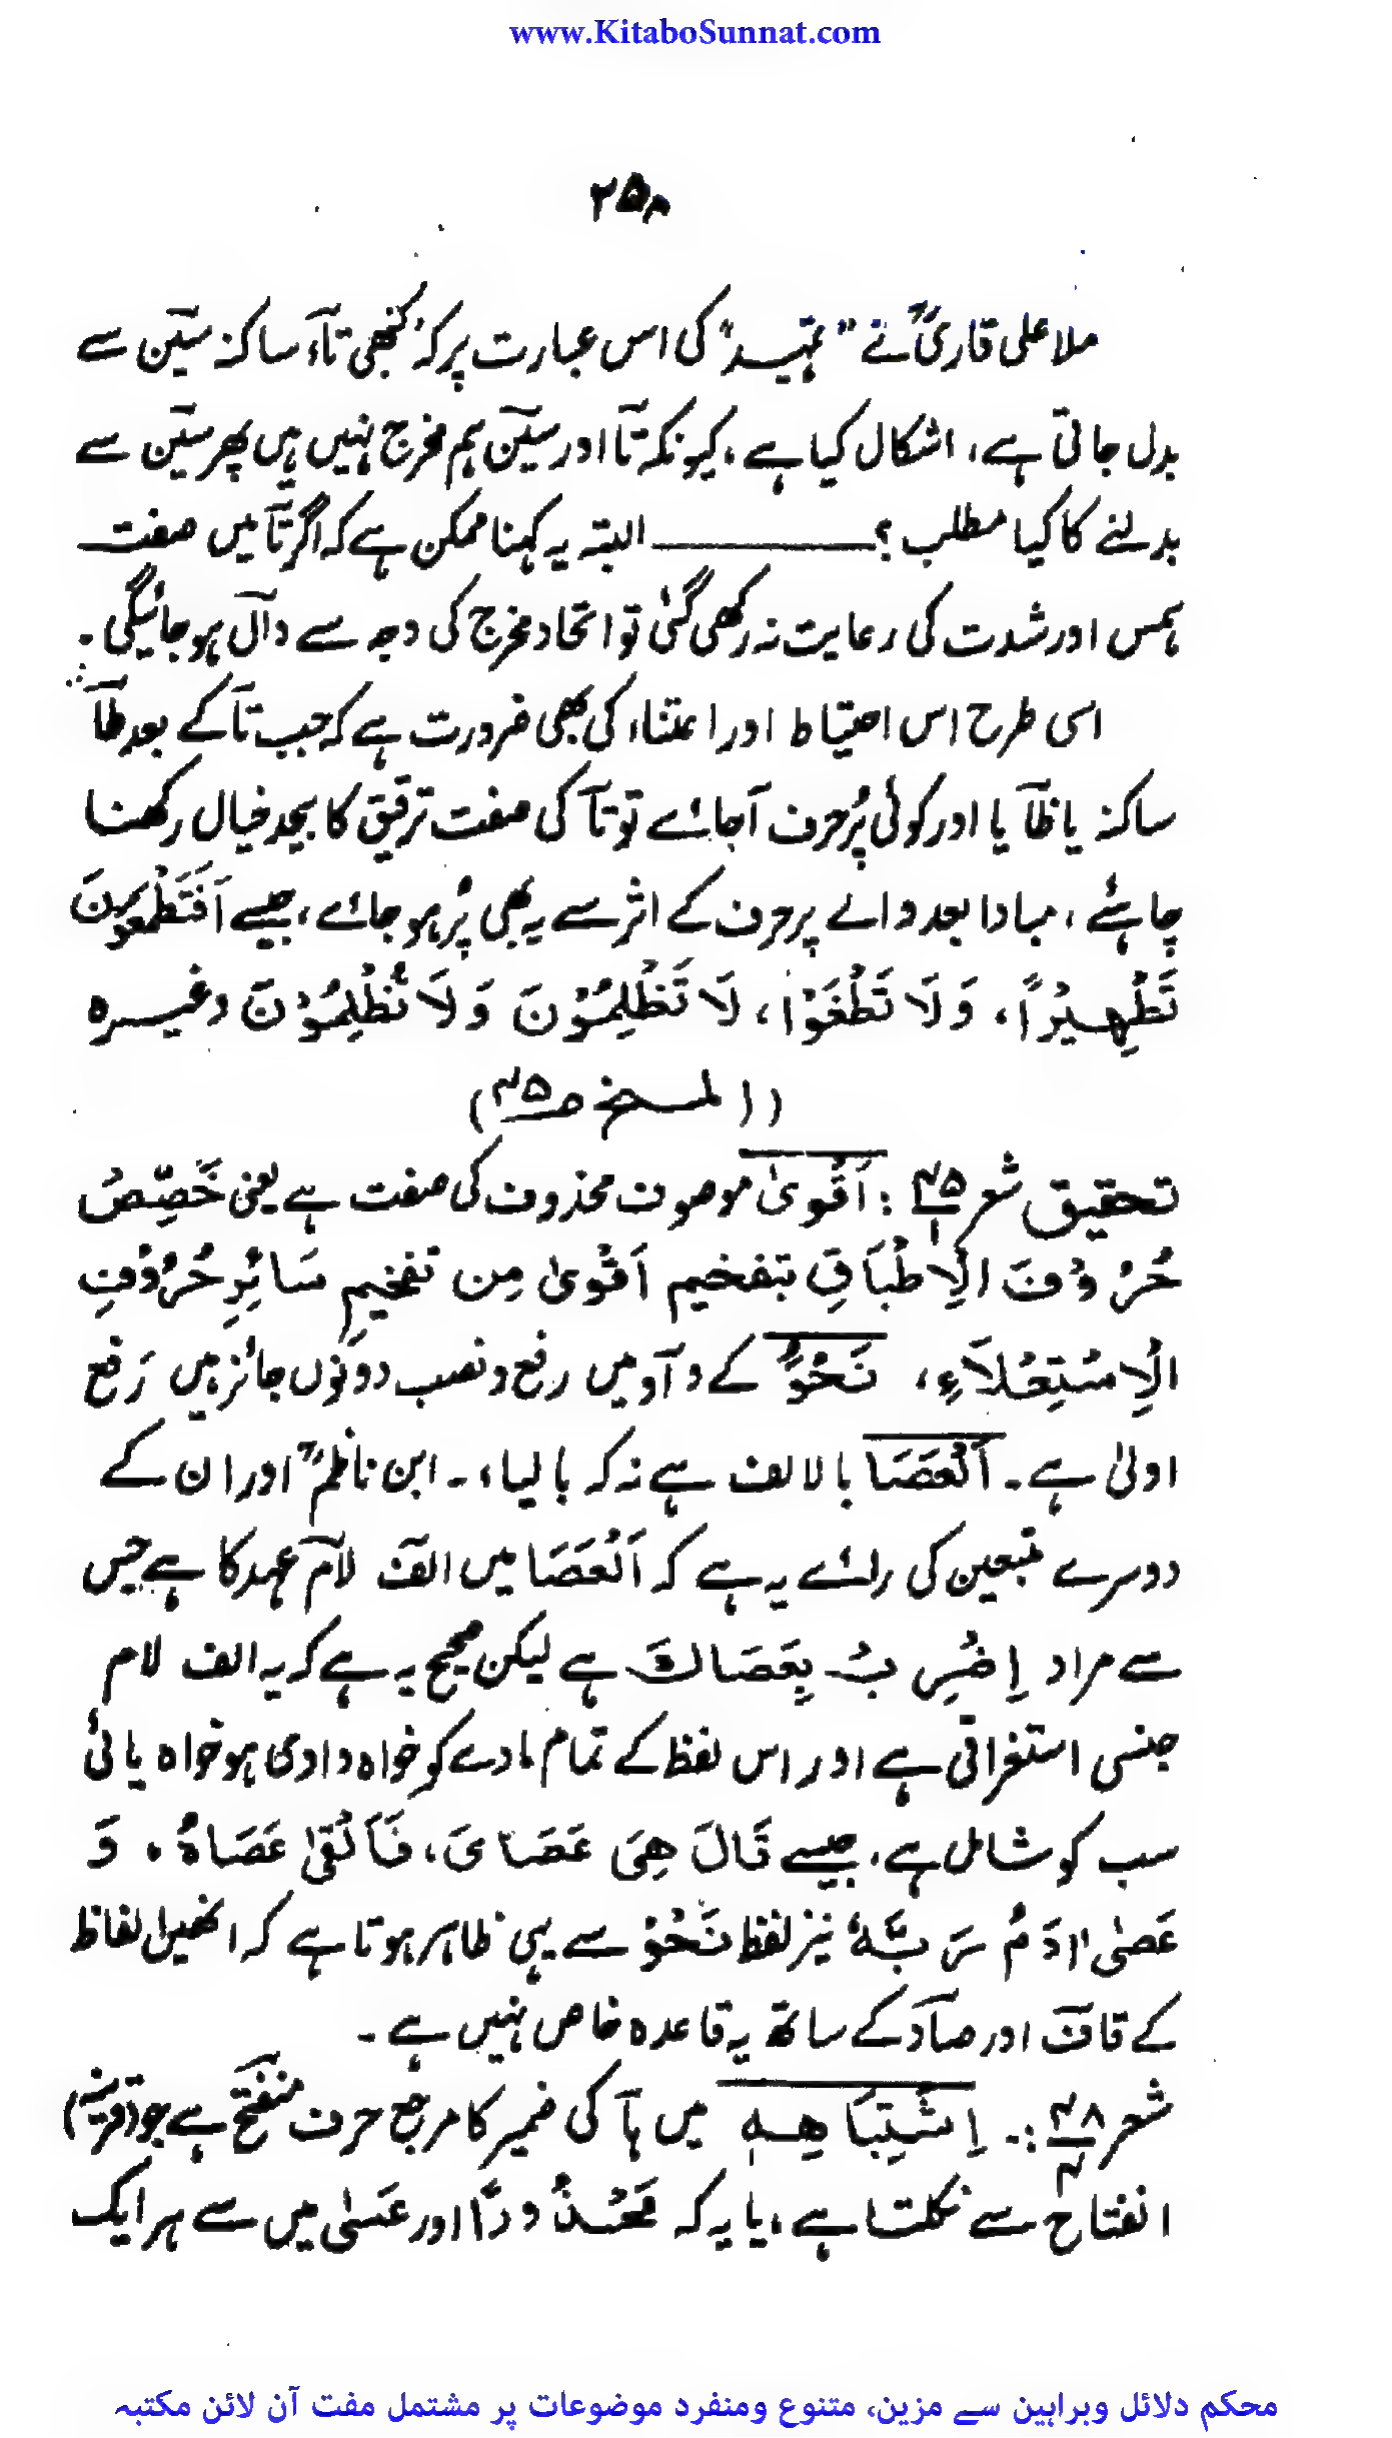 www.KitaboSunnat.com
۲۵۸
ملا علی قاریؒ نے ”تمہید“ کی اس عبارت پر کہ کبھی تآء ساکنہ سیٓن سے
بدل جاتی ہے، اشکال کیا ہے، کیونکہ تآ اور سیٓن ہم مخرج نہیں ہیں پھر سیٓن سے
بدلنے کا کیا مطلب؟ ـــــــــ البتہ یہ کہنا ممکن ہے کہ اگر تآ میں صفت
ہمس اور شدت کی رعایت نہ رکھی گئی تو اتحاد مخرج کی وجہ سے دآل ہو جائیگی۔
اسی طرح اس احتیاط اور اعتناء کی بھی ضرورت ہے کہ جب تآ کے بعد طآ
ساکنہ یا ظآ یا اور کوئی پُر حرف آجائے تو تآ کی صفت ترقیق کا بیحد خیال رکھنا
چاہئے، مبادا بعد والے پر حرف کے اثر سے یہ بھی پُر ہو جائے، جیسے اَفَتَطْمَعُوْنَ
تَطْهِيْرًا، وَلَا تَطْغَوْا، لَا تَظْلِمُوْنَ وَلَا تُظْلَمُوْنَ وغیرہ
(المنح ص۴۵)
تحقیق شعر ۴۵/۱ : اَقْویٰ موصوف محذوف کی صفت ہے یعنی خَصِّصْ
حُرُوْفَ الْاِطْبَاقِ بتفخیم اَقْویٰ مِن تفخیمِ سَائِرِ حُرُوْفِ
الْاِسْتِعْلَاءِ، نَحْوُ کے وآو میں رفع و نصب دونوں جائز ہیں رَفع
اولیٰ ہے۔ اَلْعَصَا بالالف ہے نہ کہ بالیاء۔ ابن ناظمؒ اور ان کے
دوسرے متبعین کی رائے یہ ہے کہ اَلْعَصَا میں الف لآم عہد کا ہے جس
سے مراد اِضْرِبْ بِعَصَاكَ ہے لیکن صحیح یہ ہے کہ یہ الف لام
جنسی استغراقی ہے اور اس لفظ کے تمام مادے کو خواہ وادی ہو خواہ یائی
سب کو شامل ہے، جیسے قَالَ هِیَ عَصَایَ، فَاَلْقیٰ عَصَاهُ، وَ
عَصیٰ اٰدَمُ رَبَّهٗ نیز لفظ نَحْوُ سے یہی ظاہر ہوتا ہے کہ انھیں الفاظ
کے قافؔ اور صآد کے ساتھ یہ قاعدہ خاص نہیں ہے۔
شعر ۴۸/۴ :۔ اِشْتِبَاهِهٖ میں ہآ کی ضمیر کا مرجع حرف منفتح ہے جو (قرینہ)
انفتاح سے نکلتا ہے، یا یہ کہ مَحْذُوْرًا اور عَسٰی میں سے ہر ایک
محکم دلائل وبراہین سے مزین، متنوع ومنفرد موضوعات پر مشتمل مفت آن لائن مکتبہ